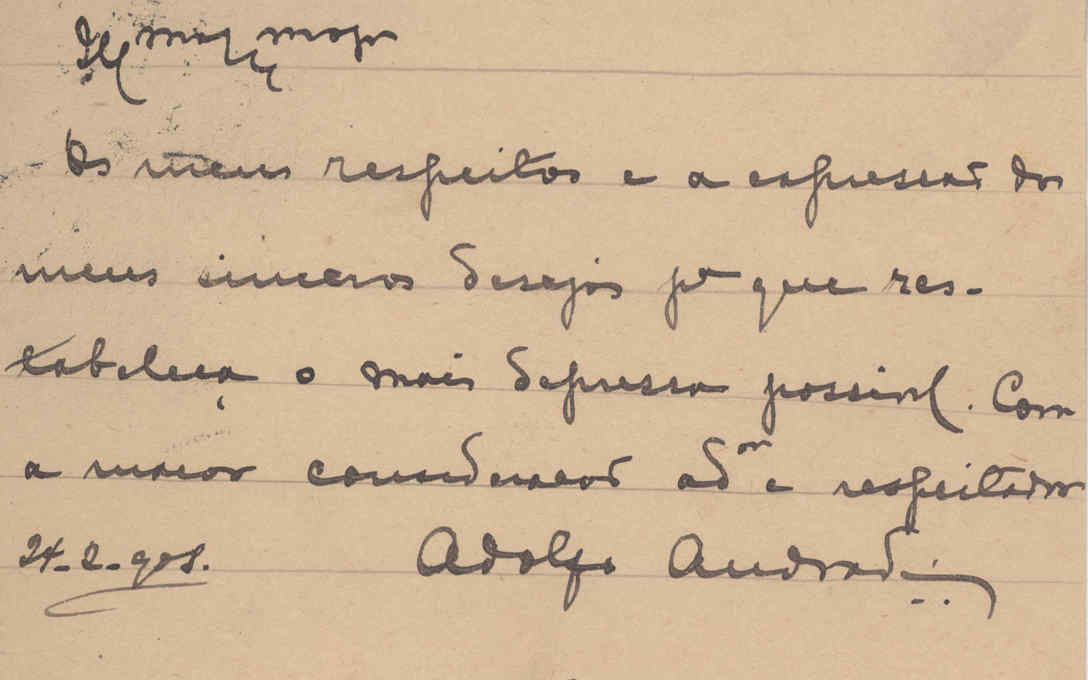 Os meus respeitos e a expressão dos
meus sinceros desejos pª que res-
tabeleça o mais depressa possivel. Com
a maior consideração adºʳ e respeitador
24-2-908.
Adolfo Andrade